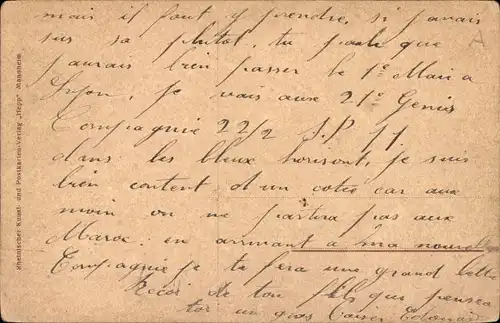 mais il faut y prendre, si j'avais
sus sa plutot, tu parle que
j'aurais bien passer le 1e Mai a
Lyon, je vais aux 21e Genis
Compagnie 22/2 S.P 77.
dans les bleux horisont, je suis
bien content d'un cotie car aux
moin on ne partira pas aux
Maroc. en arrivant a ma nouvelle
Compagnie je te fera une grand lettre
Recoi de ton fils que pensea
toi un gros Baiser Edouard
Rheinischer Kunst- und Postkarten-Verlag „Hepp" Mannheim
A